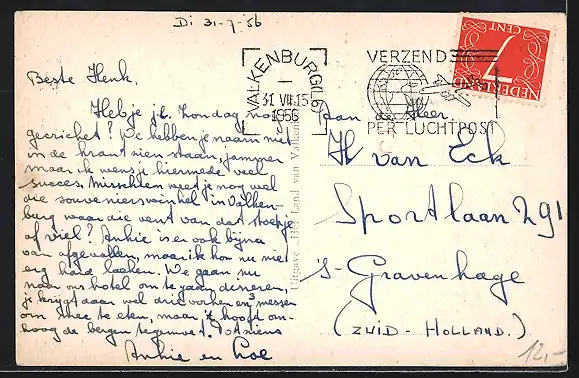 Di 31-7-56
Beste Henk,
Heb je jl. Zondag nog
gezicht? We hebben je naam niet
in de krant zien staan, jammer
maar ik wens je hiermede veel
succes. Misschien weet je nog wel
die souvenierswinkel in Valken-
burg waar die vent van dat stoepje
af viel? Ankie is er ook bijna
van afgevallen, maar ik kon nu niet
erg hard lachen. We gaan nu
naar ons hotel om te gaan dineren,
je krijgt daar wel drie vorken en 3 messen
om mee te eten, maar 't hoofd om-
hoog de bergen tegemoet. Tot ziens
Ankie en
VALKENBURG (LB)
31 VII.15
1956
VERZEND
PER LUCHTPOST
NEDERLAND
7
CENT
Uitgave „Het Land van Valkenburg
aan de Heer
H van Eck
Sportlaan 291
's-Gravenhage
(ZUID-HOLLAND.)
12,-